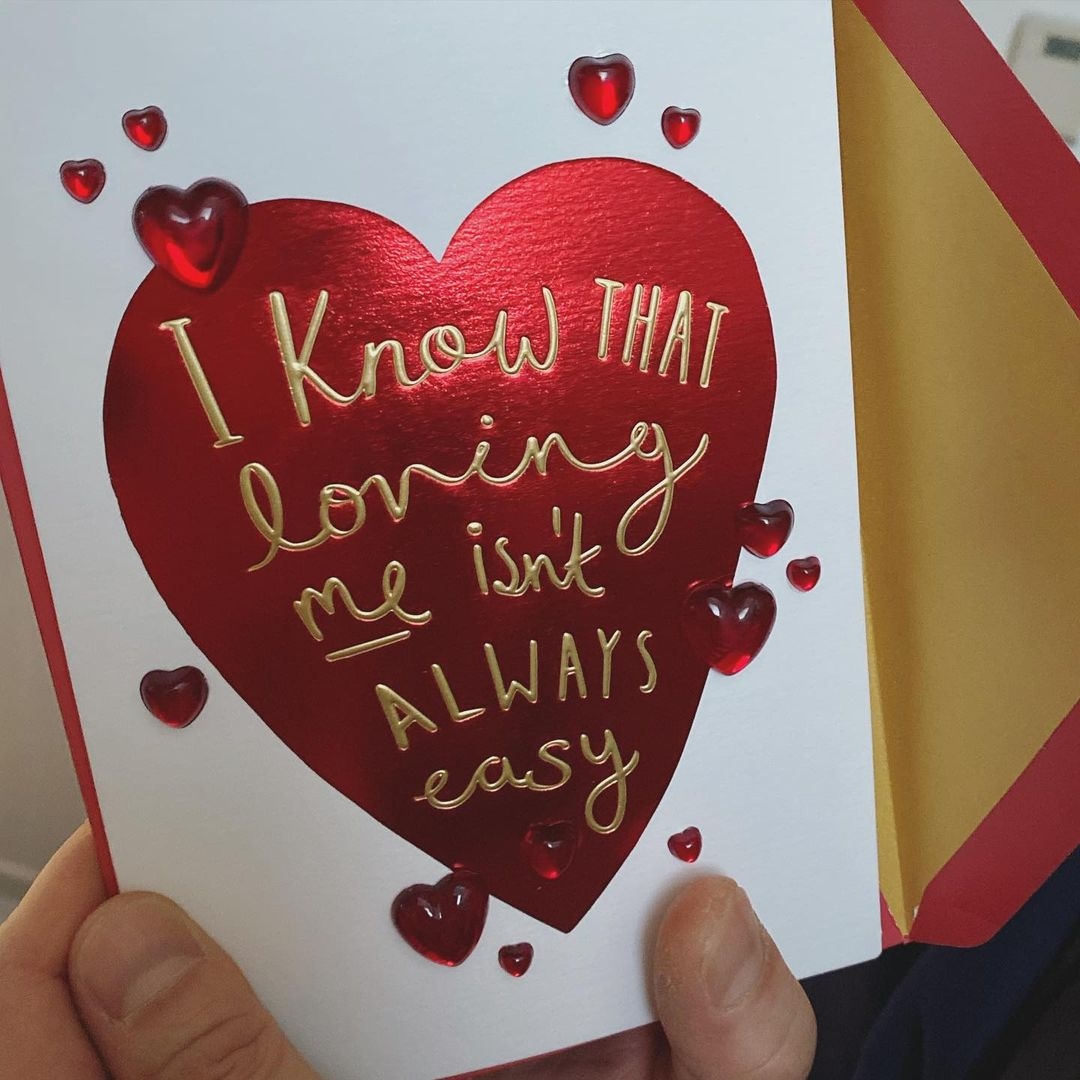 I Know THAT
loving
me isn't
ALWAYS
easy